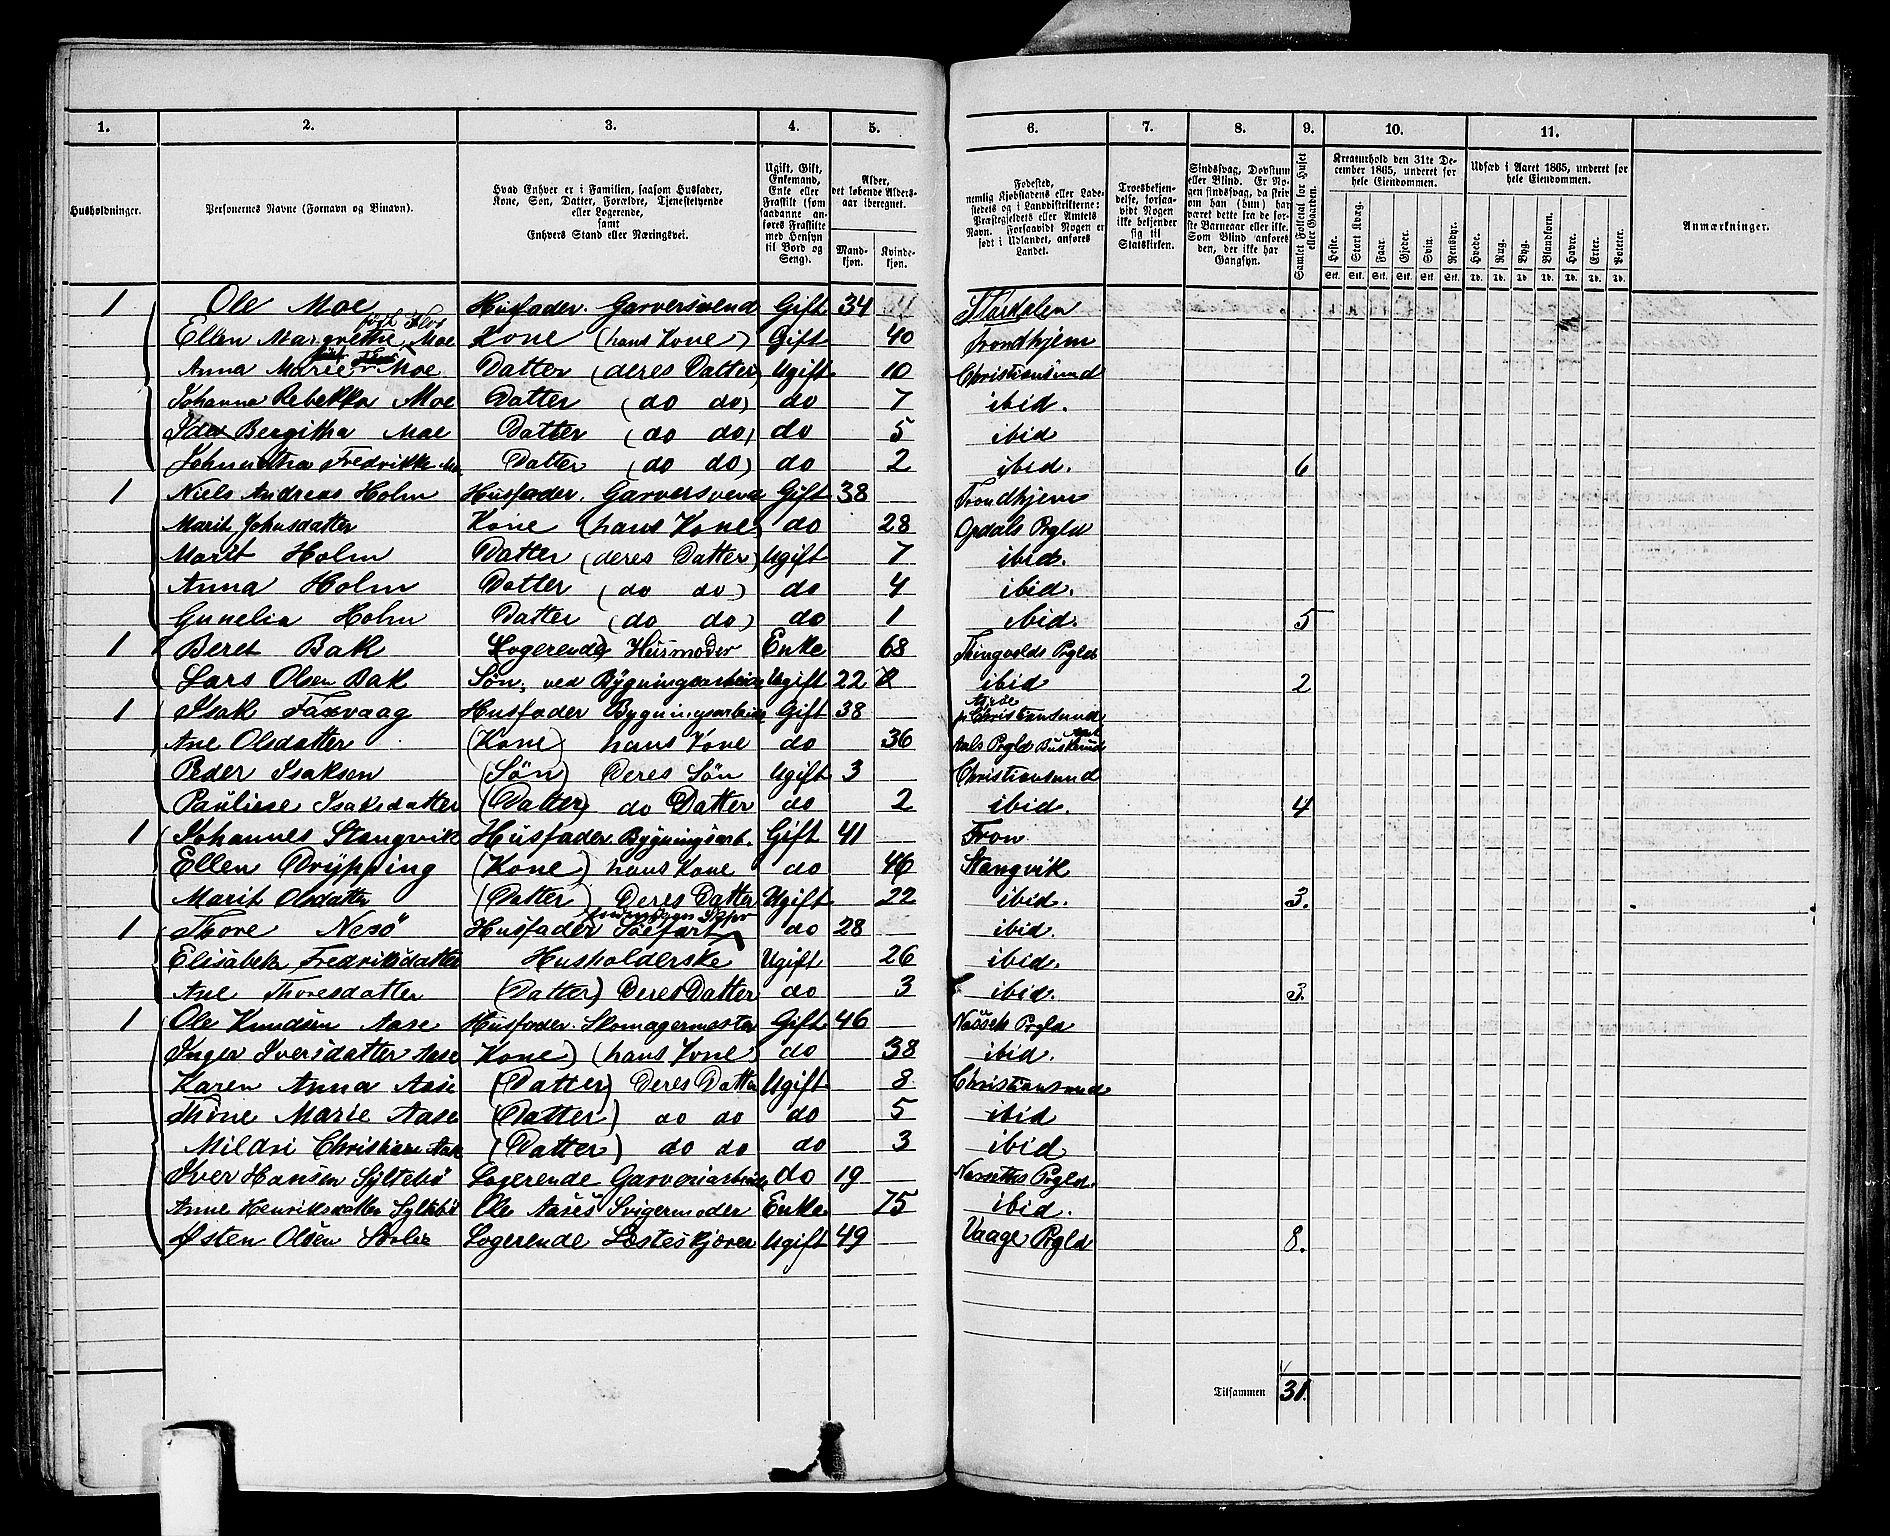 1. 2. 3. 4. 5. 6. 7. 8. 9. 10. 11.
Husholdninger.
Personernes Navne (Fornavn og Binavn).
Hvad Enhver er i Familien, saasom Husfader, Kone, Søn, Datter, Forældre, Tjenestetyende eller Logerende, samt Enhvers Stand eller Næringsvei.
Ugift, Gift, Enkemand, Enke eller Fraskilt (som saadanne anføres Fraskilte med Hensyn til Bord og Seng).
Alder, det løbende Aldersaar iberegnet.
Mandkjøn. Kvindekjøn.
Fødested, nemlig Kjøbstadens eller Ladestedets og i Landdistrikterne: Præstegjeldets eller Amtets Navn. Forsaavidt Nogen er født i Udlandet, anføres Landet.
Troesbekjendelse, forsaavidt Nogen ikke bekjender sig til Statskirken.
Sindssvag, Døvstum eller Blind. Er Nogen sindssvag, da skriv om han (hun) har været dette fra de første Barneaar eller ikke. Som Blind anføres den, der ikke har Gangsyn.
Samlet Folketal for Huset eller Gaarden.
Kreaturhold den 31te December 1865, underet for hele Eiendommen.
Heste. Stort Kvæg. Faar. Gjeder. Svin. Rensdyr.
Udsæd i Aaret 1865, underet for hele Eiendommen.
Hvede. Rug. Byg. Blandkorn. Havre. Erter. Poteter.
Stk. Stk. Stk. Stk. Stk. Stk. Td. Td. Td. Td. Td. Td. Td.
Anmærkninger.
1 Ole Moe Husfader. Garversvend Gift 34 Størdalen
Ellen Margrethe Moe Kone (hans Kone) Gift 40 Trondhjem
Anna Marie Moe Datter (deres Datter) Ugift 10 Christiansund
Johanna Rebekka Moe Datter (do do) do 7 ibid.
Ida Bergitha Moe Datter (do do) do 5 ibid
Fredrikke Datter (do do) do 2 ibid. 6
1 Niels Andreas Holm Husfader. Garversvend Gift 38 Trondhjem
Marit Johnsdatter Kone (hans Kone) do 28 Opdals Prgld
Marit Holm Datter (deres Datter) Ugift 7 ibid.
Anna Holm Datter (do do) do 4 ibid.
Gunelia Holm Datter (do do) do 1 ibid. 5
1 Beret Bak Logerende Husmoder Enke 68 Thingvolds Prgld
Lars Olsen Bak Søn, ved Bygningsarbeide Ugift 22 ibid 2
1 Isak Faxvaag Husfader Bygningsarbeide Gift 38 Christiansund
Ane Olsdatter (Kone) hans Kone do 36 Aals Prgld Buskerud Amt
Peder Isaksen (Søn) Deres Søn Ugift 3 Christiansund
Pauline Isaksdatter (Datter) do Datter do 2 ibid. 4
1 Johannes Stangvik Husfader. Bygningsarb. Gift 41 Tron
Ellen Drøpping (Kone) hans Kone do 46 Stangvik
Marit Olsdatter (Datter) Deres Datter Ugift 22 ibid. 3.
1 Thore Nesø Husfader Søefart do 28 ibid.
Elisabeth Fredriksdatter Husholderske Ugift 26 ibid.
Ane Thoresdatter (Datter) Deres Datter do 3 ibid. 3.
1 Ole Knudsen Aase Husfader. Skomagermester Gift 46 Næssets Prgld
Inger Iversdatter Aase Kone) (hans Kone) do 38 ibid.
Karen Anna Aase (Datter) Deres Datter Ugift 8 Christiansund
Thine Marie Aase (Datter) do do do 5 ibid
Mildri Christiane Aase (Datter) do do do 3 ibid
Iver Hansen Syltebø Logerende Garveriarbeide do 19 Næssets Prgld.
Anne Henriksdatter Syltebø Ole Aases Svigermoder Enke 75 ibid.
Østen Olsen Logerende Losteskjører Ugift 49 Vaage Prgld 8.
Tilsammen 31.